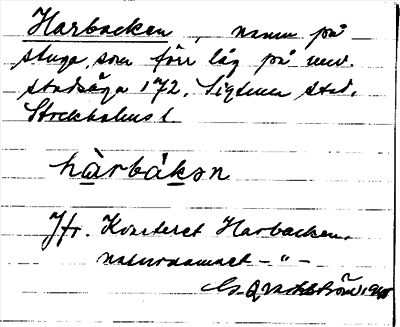 Harbacken, namn på
stuga, som förr låg på nuv.
stadsäga 172. Sigtuna stad.
Stockholms l
hàrbákən
Jfr. Kvarteret Harbacken.
naturnamnet — " —